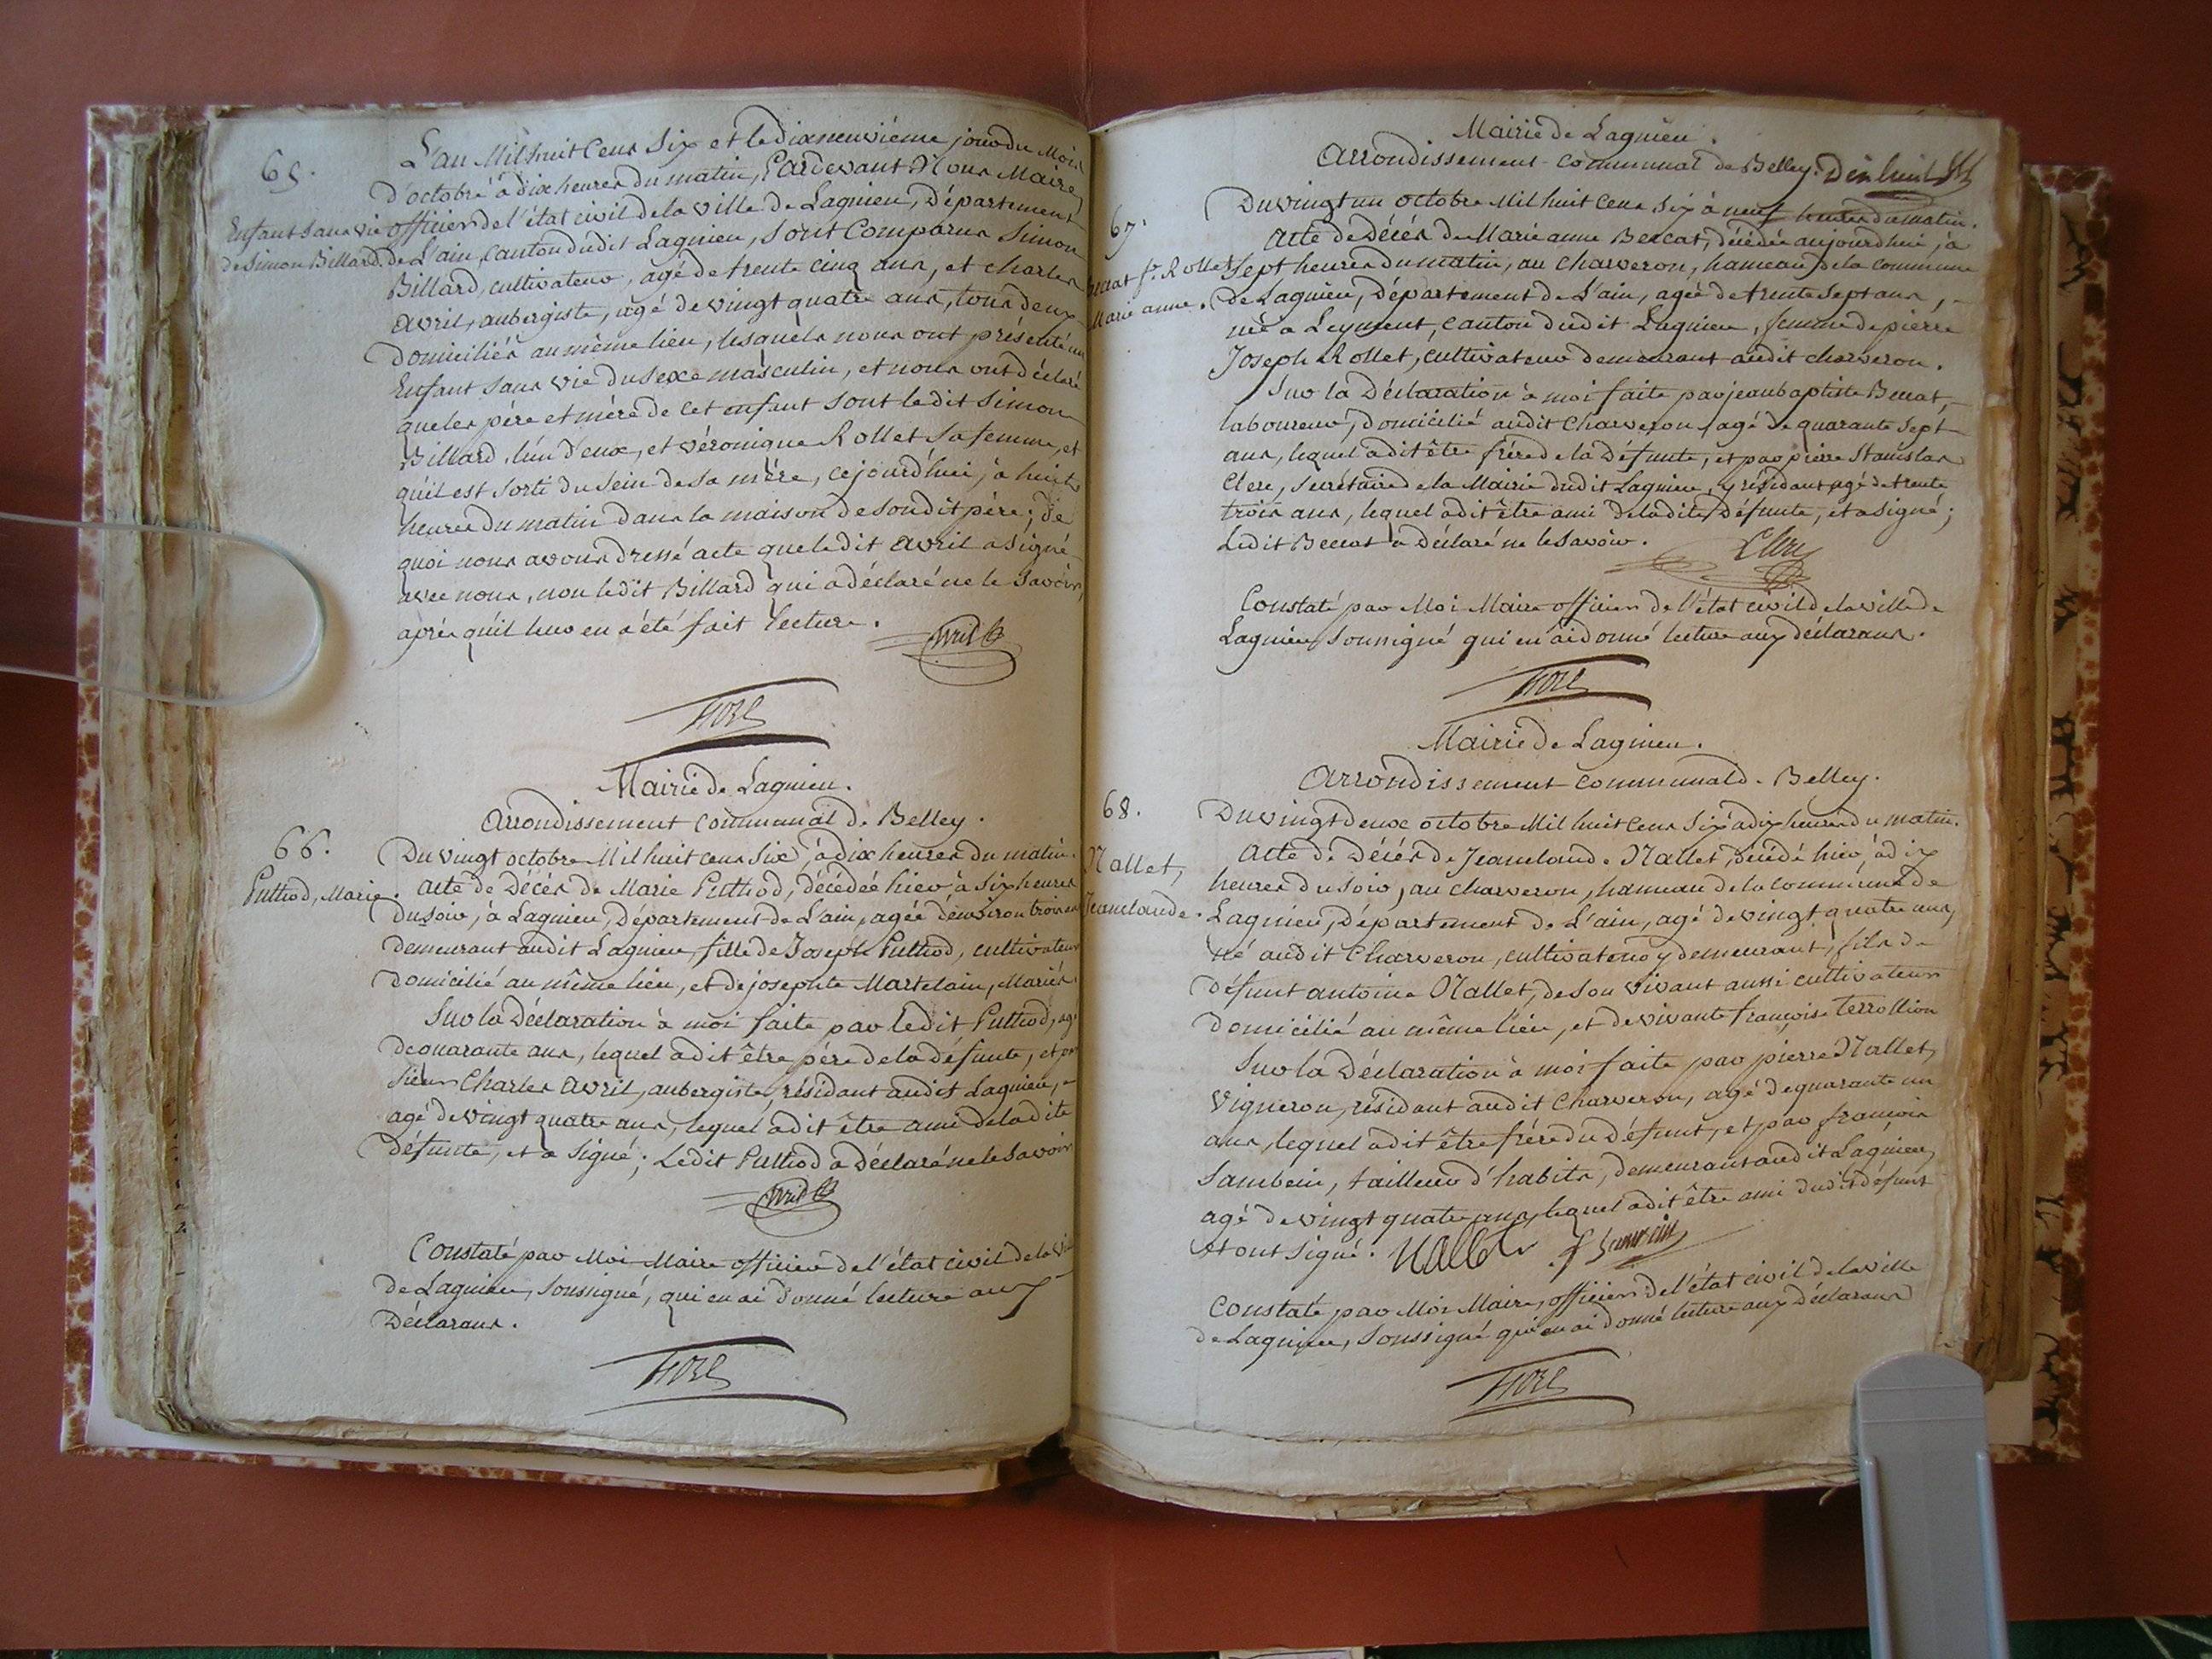 65.
Enfant sans vie
de Simon Billard.
L'an Mil huit Cens Six et le dix neuvième jour du Mois
d'octobre à dix heures du matin, Pardevant Nous Maire
officier de l'état civil de la ville de Lagnieu, Département
de L'ain, Canton dudit Lagnieu, sont Comparus Simon
Billard, cultivateur, agé de trente cinq ans, et charles
avril, aubergiste, agé de vingt quatre ans, tous deux
domiciliés au même lieu, lesquels nous ont présenté un
Enfant sans vie du sexe masculin, et nous ont déclaré
que les père et mère de cet enfant sont ledit Simon
Billard, l'un d'eux, et véronique Rollet sa femme, et
qu'il est sorti du sein de sa mère, cejourd'hui, à huit
heures du matin dans la maison de sondit père; de
quoi nous avons dressé acte que ledit avril a signé
avec nous, non ledit Billard qui a déclaré ne le savoir,
après qu'il leur en a été fait lecture.
avril
Mairie de Lagnieu.
Arrondissement communal de Belley.
66.
Puthod, Marie.
Du vingt octobre Mil huit cens six, à dix heures du matin.
Acte de Décès de Marie Puthod, décédée hier à six heures
du soir, à Lagnieu, Département de L'ain, agée d'environ trois ans
demeurant audit Lagnieu, fille de Joseph Puthod, cultivateur
domicilié au même lieu, et de josephte Martelain, Mariés.
Sur la Déclaration à moi faite par ledit Puthod, agé
de quarante ans, lequel a dit être père de la défunte, et par
sieur Charles Avril, aubergiste, résidant audit Lagnieu,
agé de vingt quatre ans, lequel a dit être ami de ladite
défunte, et a signé; Ledit Puthod a Déclaré ne le savoir
avril
Constaté par Moi Maire officier de l'état civil de la ville
de Lagnieu, soussigné, qui en ai donné lecture aux
Déclarans.
Mairie de Lagnieu.
Arrondissement communal de Belley. Dix huit
67.
Beccat fe. Rollet
Marie anne.
Du vingt un octobre Mil huit cens six à neuf heures du matin.
Acte de Décès de Marie anne Beccat, décédée aujourd'hui, à
sept heures du matin, au Charveron, hameau de la commune
de Lagnieu, Département de L'ain, agée de trente sept ans,
née a Leyment, canton dudit Lagnieu, femme de pierre
Joseph Rollet, cultivateur demeurant audit charveron.
Sur la Déclaration à moi faite par jean baptiste Beccat,
laboureur, domicilié audit Charveron, agé de quarante sept
ans, lequel a dit être frère de la Défunte, et par pierre Stanislas
Clerc, secrétaire de la Mairie dudit Lagnieu, y résidant, agé de trente
trois ans, lequel a dit être ami de ladite Défunte, et a signé;
Ledit Beccat a Déclaré ne le savoir.
Clerc
Constaté par Moi Maire officier de l'état civil de la ville de
Lagnieu, soussigné qui en ai donné lecture aux déclarans.
Mairie de Lagnieu.
Arrondissement communal de Belley.
68.
Nallet,
Jeanclaude.
Du vingt deux octobre Mil huit cens six à dix heures du matin.
Acte de Décès de Jeanclaude Nallet, décédé hier, à dix
heures du soir, au charveron, hameau de la commune de
Lagnieu, Département de L'ain, agé de vingt quatre ans,
né audit Charveron, cultivateur y demeurant, fils de
défunt antoine Nallet, de son vivant aussi cultivateur
domicilié au même lieu, et de vivante françoise
Sur la Déclaration à moi faite par pierre Nallet,
Vigneron, résidant audit Charveron, agé de quarante un
ans, lequel a dit être frère du Défunt, et par françois
Sambein, tailleur d'habits, demeurant audit Lagnieu,
agé de vingt quatre ans, lequel a dit être ami dudit défunt
et ont signé. Nallet
Constaté par Moi Maire, officier de l'état civil de la ville
de Lagnieu, soussigné qui en ai donné lecture aux Déclarans